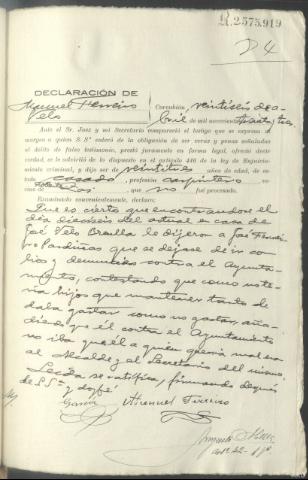 R.2575.919
24
DECLARACIÓN DE
Manuel Ferreiro
Velo
Corcubión veintiséis de a-
bril de mil novecientos treinta y tres
Ante el Sr. Juez y mi Secretario compareció el testigo que se expresa al
margen a quien S. Sª enteró de la obligación de ser veraz y penas señaladas
al delito de falso testimonio, prestó juramento en forma legal, ofreció decir
verdad, se le instruyó de lo dispuesto en el artículo 446 de la ley de Enjuicia-
miento criminal, y dijo ser de veintitres años de edad, de es-
tado casado, profesión carpintero,
que no fué procesado.
Examinado convenientemente, declara:
Que es cierto que encontrándose el
día dieciseis del actual en casa de
José Velo le dijeron a José Ferrei-
ro Pardiñas que se dejase de in co-
bios y denuncias contra el Ayunta-
miento, contestando que como no te-
nia hijos que mantener tanto le
daba gastar como no gastar, aña-
diendo que él contra el Ayuntamiento
no iba que él a quien quería mal era
al Alcalde y al Secretario del mismo.
Leida se ratifica, firmando después
de S.Sª y doy fé.
García Manuel Ferreiro